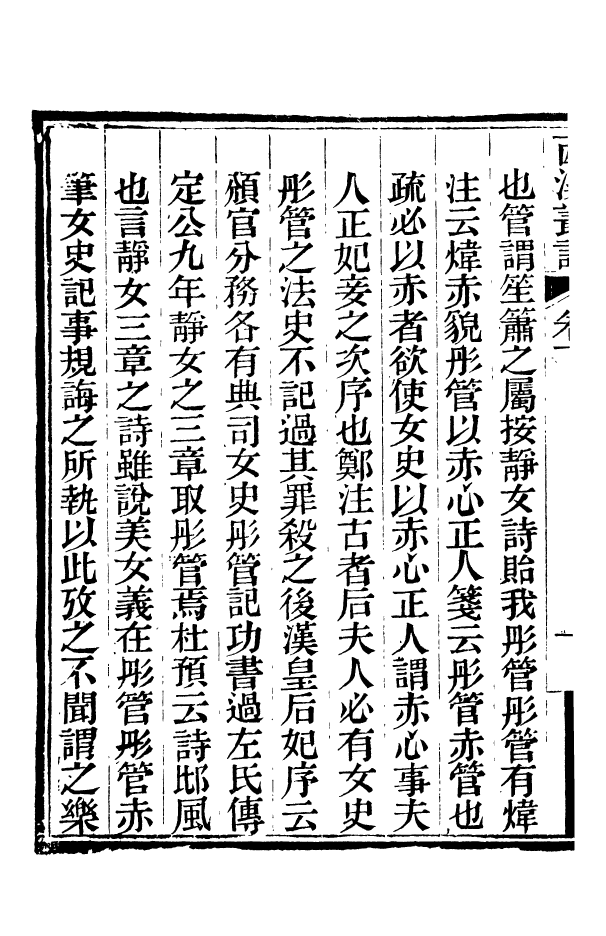 也管謂笙簫之屬按靜女詩貽我彤管彤管有煒
注云煒赤貌彤管以赤心正人箋云彤管赤管也
疏必以赤者欲使女史以赤心正人謂赤心事夫
人正妃妾之次序也鄭注古者后夫人必有女史
彤管之法史不記過其罪殺之後漢皇后妃序云
頒官分務各有典司女史彤管記功書過左氏傳
定公九年靜女之三章取彤管焉杜預云詩邶風
也言靜女三章之詩雖說美女義在彤管彤管赤
筆女史記事規誨之所執以此攷之不聞謂之樂